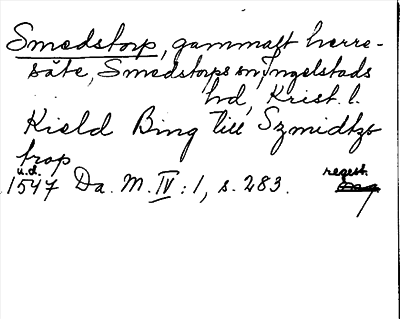 Smedstorp, gammalt herre-
säte, Smedstorps sn, Ingelstads
hd, Krist. l.
Kield Bing till Szmidtzs
trop
u.d.
1547 Da. M. IV: 1, s. 283. regest.